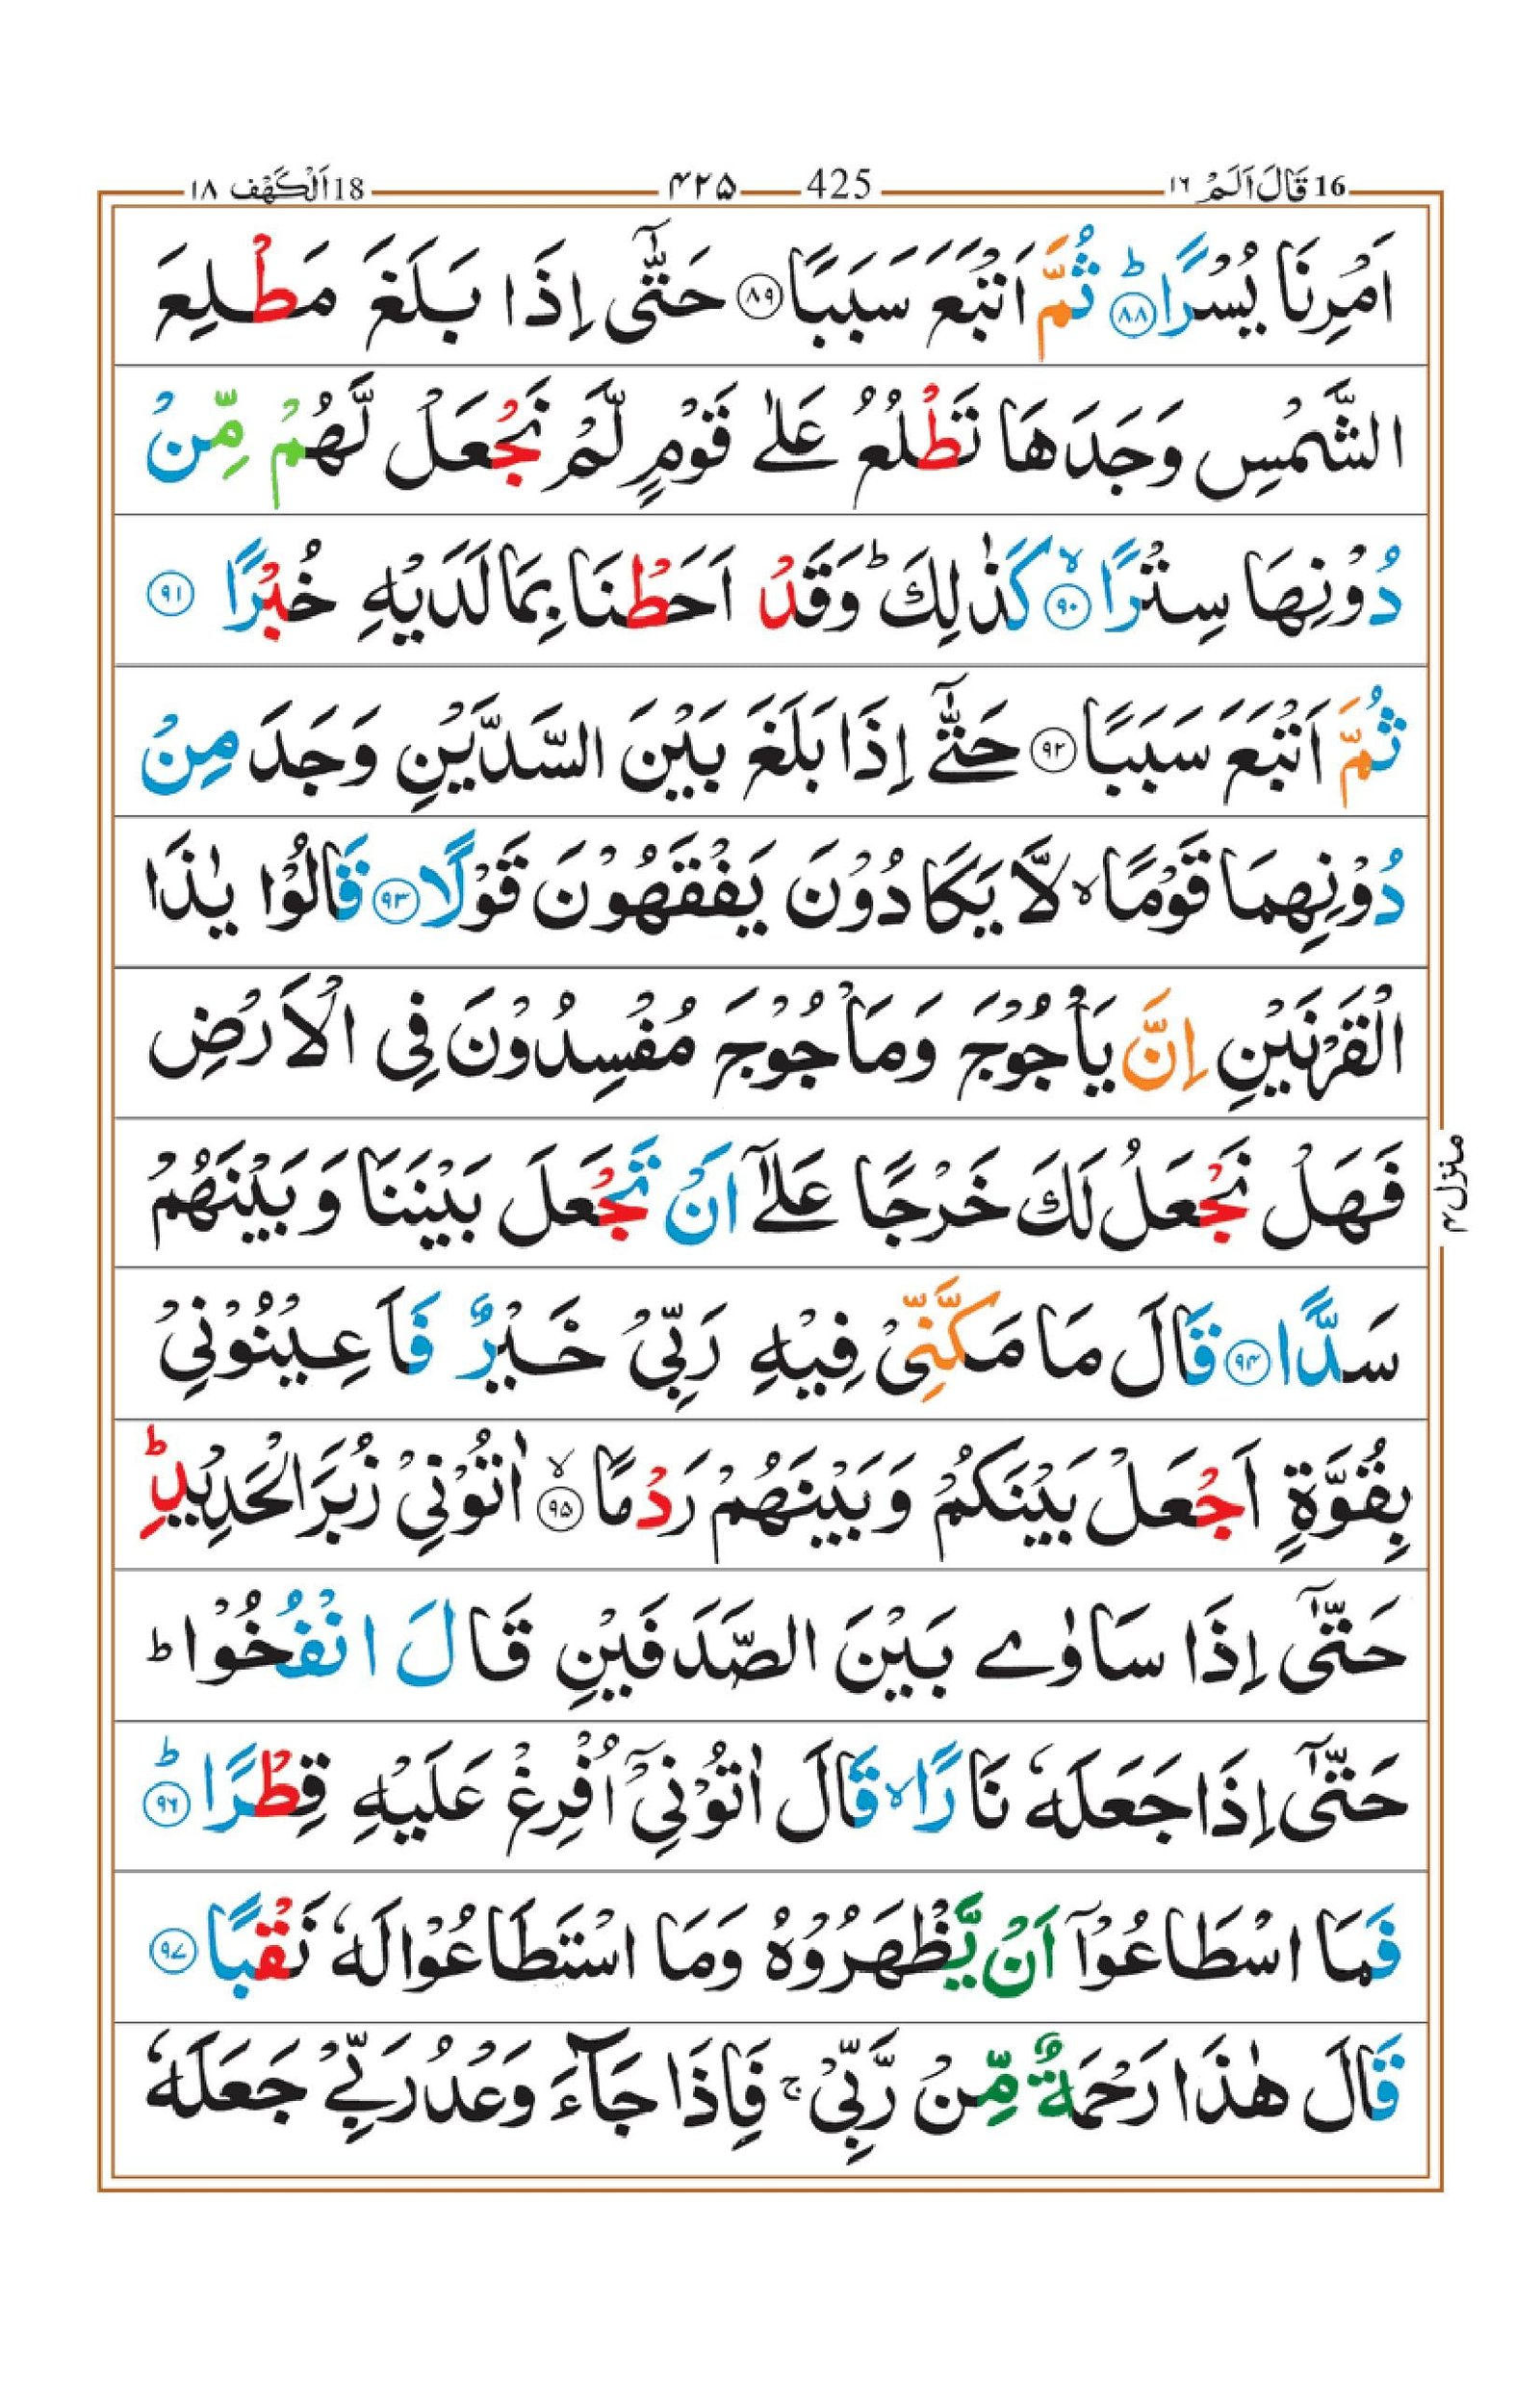 16 قَالَ اَلَمْ ١٦
425 ۴۲۵
18 اَلْكَهْف ١٨
اَمْرِنَا يُسْرًاؕ ﴿۸۸﴾ ثُمَّ اَتْبَعَ سَبَبًا ﴿۸۹﴾ حَتّٰۤى اِذَا بَلَغَ مَطْلِعَ
الشَّمْسِ وَجَدَهَا تَطْلُعُ عَلٰى قَوْمٍ لَّمْ نَجْعَلْ لَّهُمْ مِّنْ
دُوْنِهَا سِتْرًاۙ ﴿۹۰﴾ كَذٰلِكَؕ وَقَدْ اَحَطْنَا بِمَا لَدَيْهِ خُبْرًا ﴿۹۱﴾
ثُمَّ اَتْبَعَ سَبَبًا ﴿۹۲﴾ حَتّٰۤى اِذَا بَلَغَ بَيْنَ السَّدَّيْنِ وَجَدَ مِنْ
دُوْنِهِمَا قَوْمًاۙ لَّا يَكَادُوْنَ يَفْقَهُوْنَ قَوْلًا ﴿۹۳﴾ قَالُوْا يٰذَا
الْقَرْنَيْنِ اِنَّ يَاْجُوْجَ وَمَاْجُوْجَ مُفْسِدُوْنَ فِى الْاَرْضِ
فَهَلْ نَجْعَلُ لَكَ خَرْجًا عَلٰۤى اَنْ تَجْعَلَ بَيْنَنَا وَبَيْنَهُمْ
سَدًّا ﴿۹۴﴾ قَالَ مَا مَكَّنِّىْ فِيْهِ رَبِّىْ خَيْرٌ فَاَعِيْنُوْنِىْ
بِقُوَّةٍ اَجْعَلْ بَيْنَكُمْ وَبَيْنَهُمْ رَدْمًاۙ ﴿۹۵﴾ اٰتُوْنِىْ زُبَرَ الْحَدِيْدِؕ
حَتّٰۤى اِذَا سَاوٰى بَيْنَ الصَّدَفَيْنِ قَالَ انْفُخُوْاؕ
حَتّٰۤى اِذَا جَعَلَهٗ نَارًاۙ قَالَ اٰتُوْنِىْۤ اُفْرِغْ عَلَيْهِ قِطْرًاؕ ﴿۹۶﴾
فَمَا اسْطَاعُوْۤا اَنْ يَّظْهَرُوْهُ وَمَا اسْتَطَاعُوْا لَهٗ نَقْبًا ﴿۹۷﴾
قَالَ هٰذَا رَحْمَةٌ مِّنْ رَّبِّىْۚ فَاِذَا جَآءَ وَعْدُ رَبِّىْ جَعَلَهٗ
منزل ۴